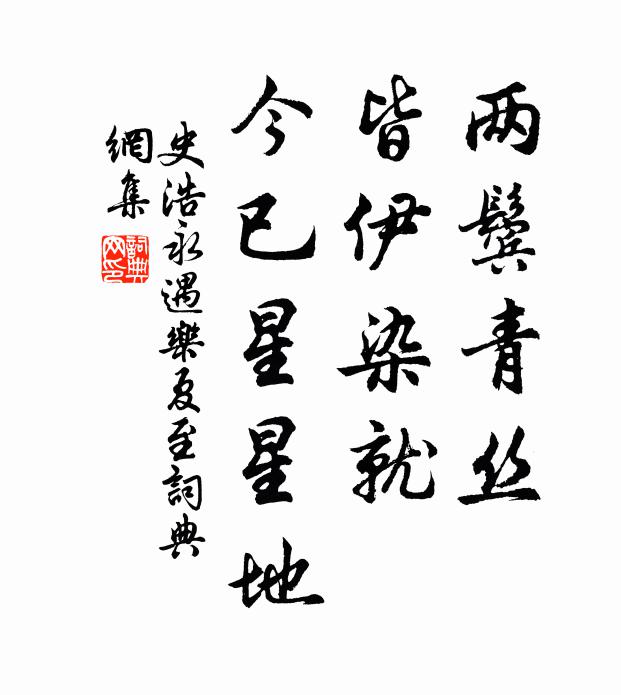 两鬓青丝
皆伊染就
今已星星地
史浩永遇樂夏至詞典
網集
詞典
网印